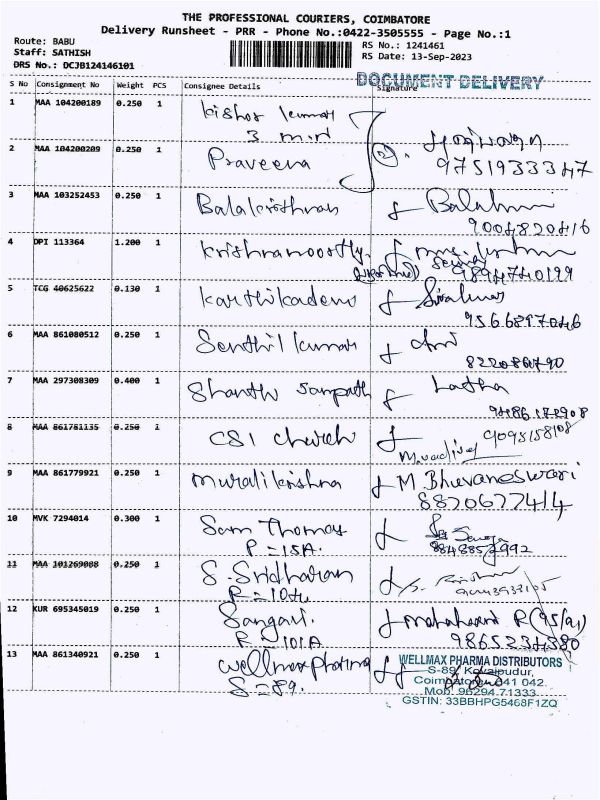 THE PROFESSIONAL COURIERS, COIMBATORE
Delivery Runsheet - PRR - Phone No.:0422-3505555 - Page No.:1
Route: BABU
Staff: SATHISH
DRS No.: DCJB124146101
RS No.: 1241461
RS Date: 13-Sep-2023
DOCUMENT DELIVERY
S No Consignment No Weight PCS Consignee Details Signature
1 MAA 104200189 0.250 1 Kishor Kumar
2 MAA 104200209 0.250 1 Praveena
9751933347
3 MAA 103252453 0.250 1 Balakrishnan
9004820416
4 DPI 113364 1.200 1 Krishnamoorthy
9894740199
5 TCG 40625622 0.130 1
9566897046
6 MAA 861080512 0.250 1 Senthil Kumar
7 MAA 297308309 0.400 1 Shanthi Sampath Latha
8 MAA 861781135 0.250 1 CSI Church
9095158108
9 MAA 861779921 0.250 1 Muralikrishna M. Bhuvaneswari
8870677414
10 MVK 7294014 0.300 1 Sam Thomas
P=15A.
11 MAA 101269088 0.250 1 S. Sridharan
12 KUR 695345019 0.250 1
R=101A
13 MAA 861340921 0.250 1 Wellmax pharma
S=89.
WELLMAX PHARMA DISTRIBUTORS
S-89, Kovaipudur,
Coimbatore-641 042.
Mob: 96294 71333
GSTIN: 33BBHPG5468F1ZQ